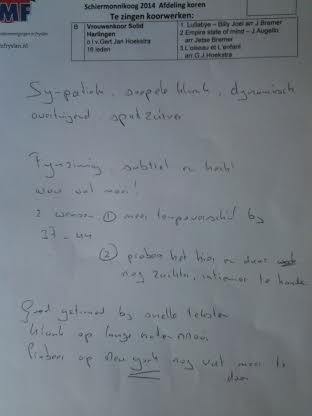 MF
Schiermonnikoog 2014 Afdeling koren
Te zingen koorwerken:
8
Vrouwenkoor Solid
Harlingen
o.l.v.Gert Jan Hoekstra
16 leden
1. Lullabye – Billy Joel arr J Bremer
2 Empire state of mind – J.Augello
arr Jetse Bremer
3 L'oiseau et L'enfant
arr.G.J.Hoekstra
Sympatiek, soepele klank, dynamisch
overtuigend, spatzuiver
Fijnzinnig, subtiel en hecht!
wow wat mooi!
2 wensen ① meer tempoverschil bij
37 - 44
② probeer het hier en daar
nog zachter, intiemer te houden
Goed getimed bij snelle teksten
klank op lange noten mooi
Probeer op New york nog wat meer te
doen